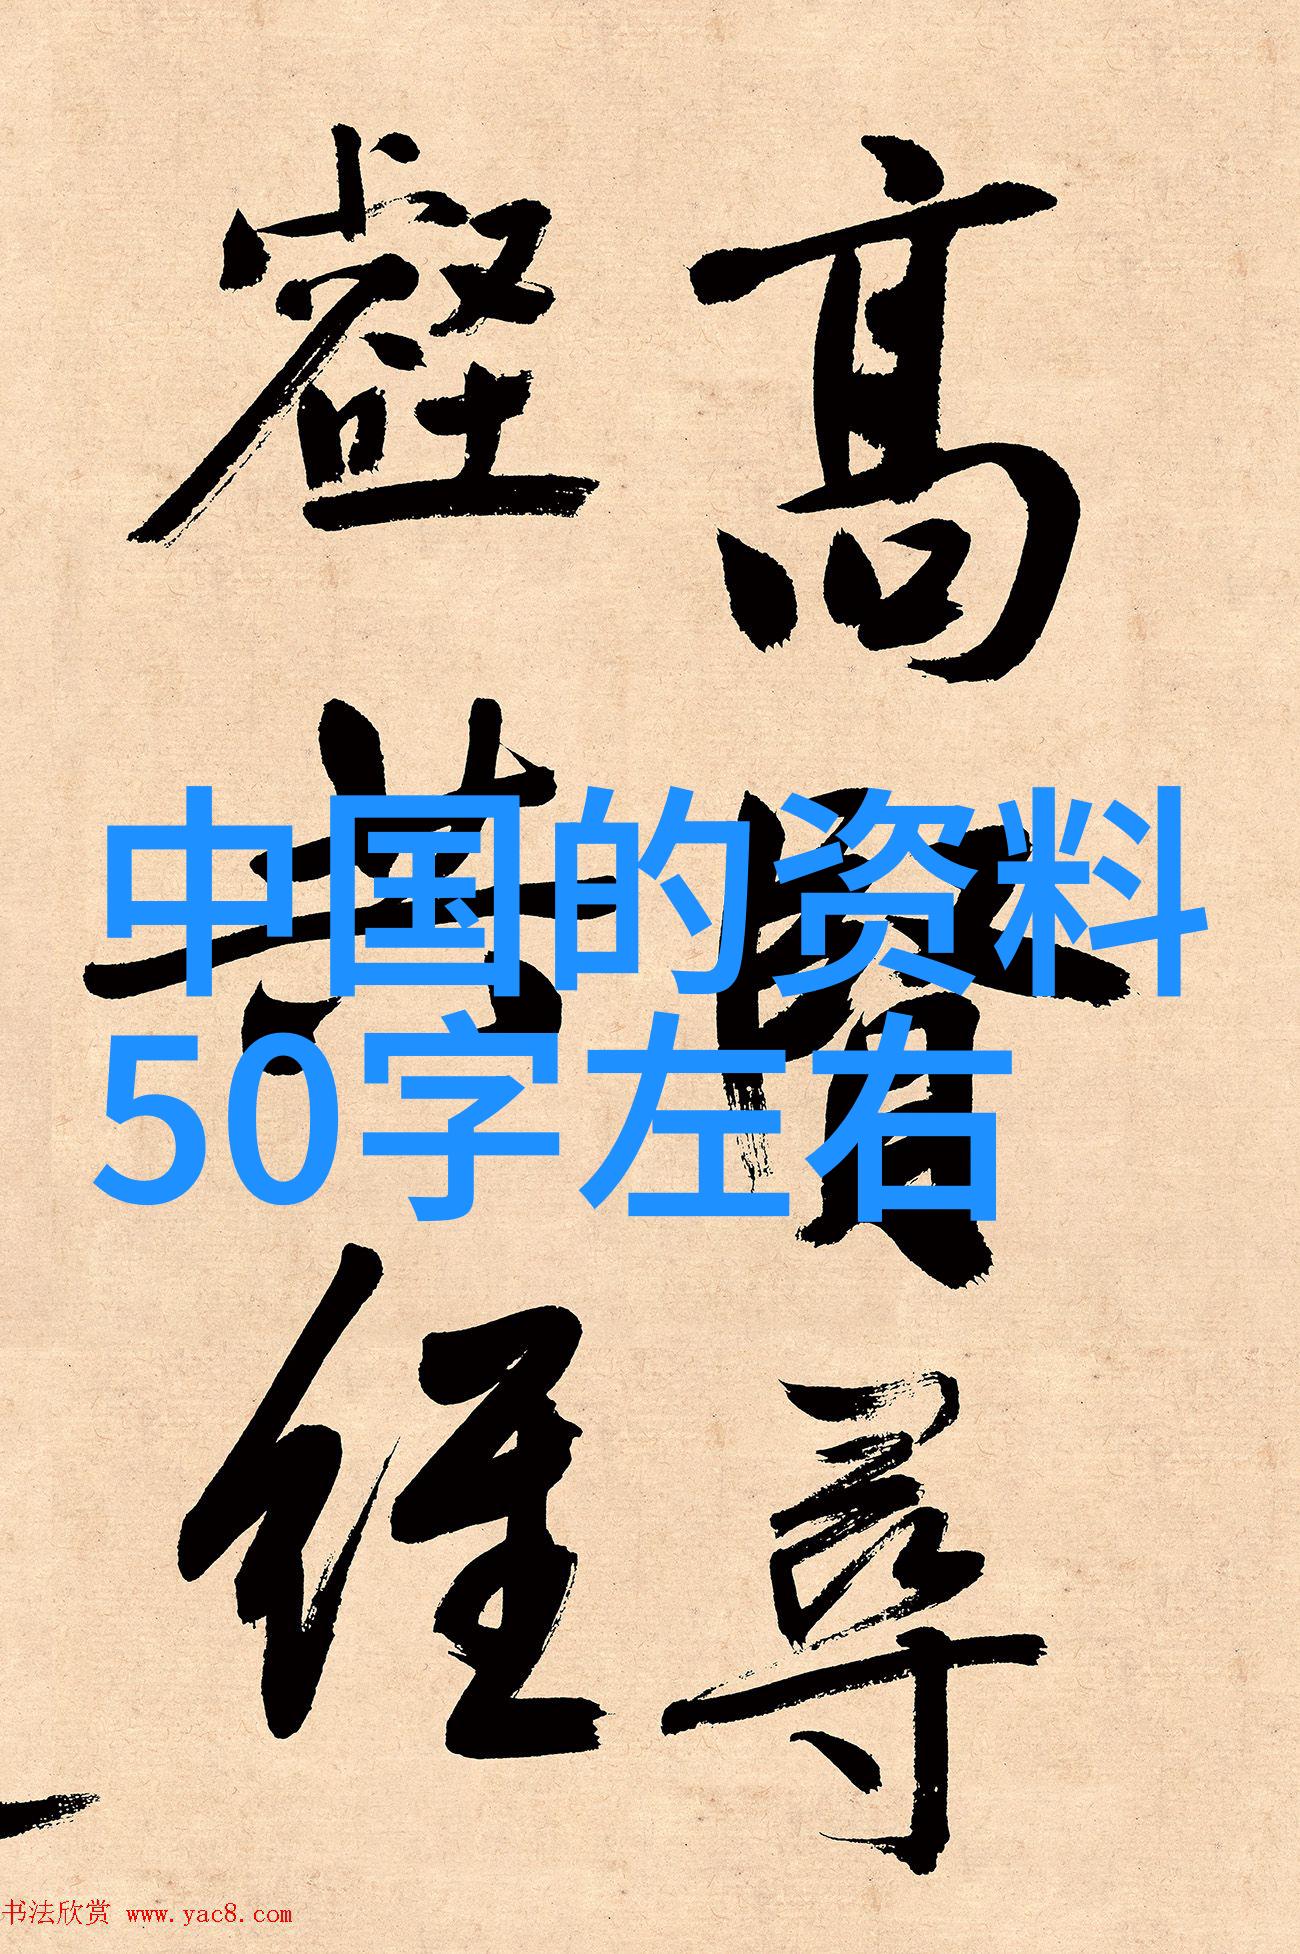 高
賢
尋
壑
黄
經
中国的资料
50字左右
书法欣赏 www.yac8.com